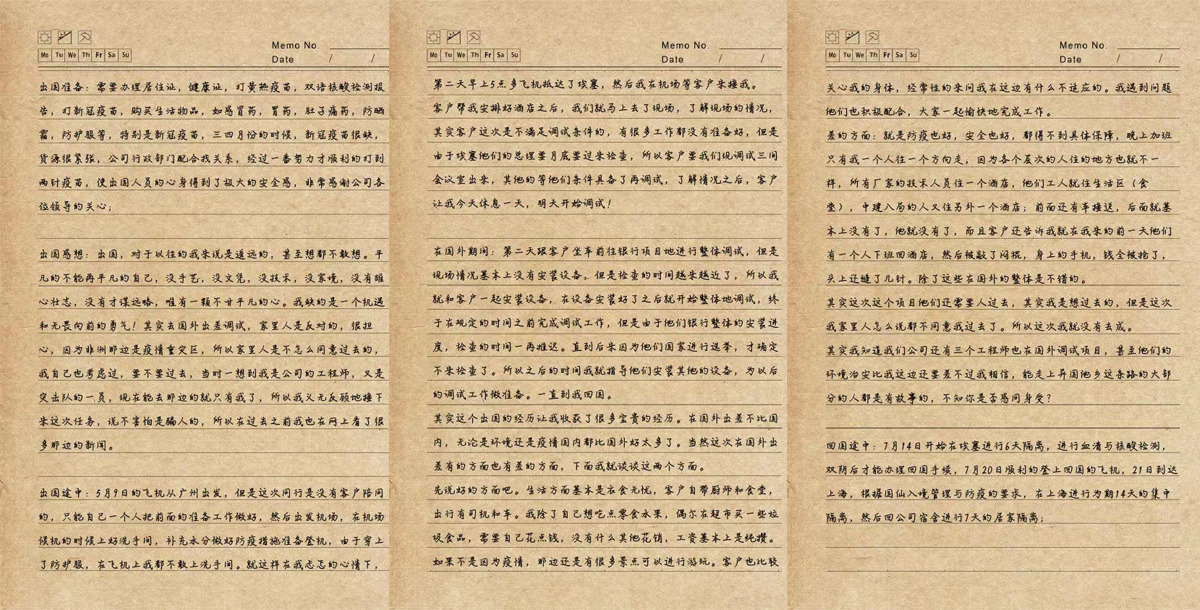 Memo No.
Mo Tu We Th Fr Sa Su
Date / /
出国准备：需要办理居住证，健康证，打黄热疫苗，双语核酸检测报
告，打新冠疫苗，购买生活物品，如感冒药，胃药，肚子痛药，防晒
霜，防护服等，特别是新冠疫苗，三四月份的时候，新冠疫苗很缺，
货源很紧张，公司行政部门配合我关系，经过一番努力才顺利的打到
两针疫苗，使出国人员的心身得到了极大的安全感，非常感谢公司各
位领导的关心；
出国感想：出国，对于以往的我来说是遥远的，甚至想都不敢想。平
凡的不能再平凡的自己，没手艺，没文凭，没技术，没家境，没有雄
心壮志，没有才谋远略，唯有一颗不甘平凡的心。我缺的是一个机遇
和无畏向前的勇气！其实去国外出差调试，家里人是反对的，很担
心，因为非洲那边是疫情重灾区，所以家里人是不怎么同意过去的，
我自己也考虑过，要不要过去，当时一想到我是公司的工程师，又是
突击队的一员，现在能去那边的就只有我了，所以我义无反顾地接下
来这次任务，说不害怕是骗人的，所以在过去之前我也在网上看了很
多那边的新闻。
出国途中：5月9日的飞机从广州出发，但是这次同行是没有客户陪同
的，只能自己一个人把前面的准备工作做好，然后出发机场，在机场
候机的时候上好洗手间，补充水分做好防疫措施准备登机，由于穿上
了防护服，在飞机上我都不敢上洗手间。就这样在我忐忑的心情下，
Memo No.
Mo Tu We Th Fr Sa Su
Date / /
第二天早上5点多飞机抵达了埃塞，然后我在机场等客户来接我。
客户帮我安排好酒店之后，我们就马上去了现场，了解现场的情况，
其实客户这次是不满足调试条件的，有很多工作都没有准备好，但是
由于埃塞他们的总理要月底要过来检查，所以客户要我们现调试三间
会议室出来，其他的等他们条件具备了再调试，了解情况之后，客户
让我今天休息一天，明天开始调试！
在国外期间：第二天跟客户坐车前往银行项目地进行整体调试，但是
现场情况基本上没有安装设备，但是检查的时间越来越近了，所以我
就和客户一起安装设备，在设备安装好了之后就开始整体地调试，终
于在规定的时间之前完成调试工作，但是由于他们银行整体的安装进
度，检查的时间一再推迟。直到后来因为他们国家进行选举，才确定
不来检查了。所以之后的时间我就指导他们安装其他的设备，为以后
的调试工作做准备。一直到我回国。
其实这个出国的经历让我收获了很多宝贵的经历。在国外出差不比国
内，无论是环境还是疫情国内都比国外好太多了。当然这次在国外出
差有的方面也有差的方面，下面我就谈谈这两个方面。
先说好的方面吧。生活方面基本是衣食无忧，客户自带厨师和食堂，
出行有司机和车。我除了自己想吃点零食水果，偶尔在超市买一些垃
圾食品，需要自己花点钱，没有什么其他花销，工资基本上是纯攒。
如果不是因为疫情，那边还是有很多景点可以进行游玩。客户也比较
Memo No.
Mo Tu We Th Fr Sa Su
Date / /
关心我的身体，经常性的来问我在这边有什么不适应的。我遇到问题
他们也积极配合，大家一起愉快地完成工作。
差的方面：就是防疫也好，安全也好，都得不到具体保障，晚上加班
只有我一个人往一个方向走，因为各个层次的人住的地方也就不一
样，所有厂家的技术人员住一个酒店，他们工人就住生活区（食
堂），中建八局的人又住另外一个酒店；前面还有车接送，后面就基
本上没有了，他就没有了，而且客户还告诉我就在我来的前一天他们
有一个人下班回酒店，然后被敲了闷棍，身上的手机，钱全被抢了，
头上还缝了几针。除了这些在国外的整体是不错的。
其实这次这个项目他们还需要人过去，其实我是想过去的，但是这次
我家里人怎么说都不同意我过去了。所以这次我就没有去成。
其实我知道我们公司还有三个工程师也在国外调试项目，甚至他们的
环境治安比我这边还要差不过我相信，能走上异国他乡这条路的大部
分的人都是有故事的，不知你是否感同身受？
回国途中：7月14日开始在埃塞进行6天隔离，进行血清与核酸检测，
双阴后才能办理回国手续，7月20日顺利的登上回国的飞机，21日到达
上海，根据国仙入境管理与防疫的要求，在上海进行为期14天的集中
隔离，然后回公司宿舍进行7天的居家隔离；